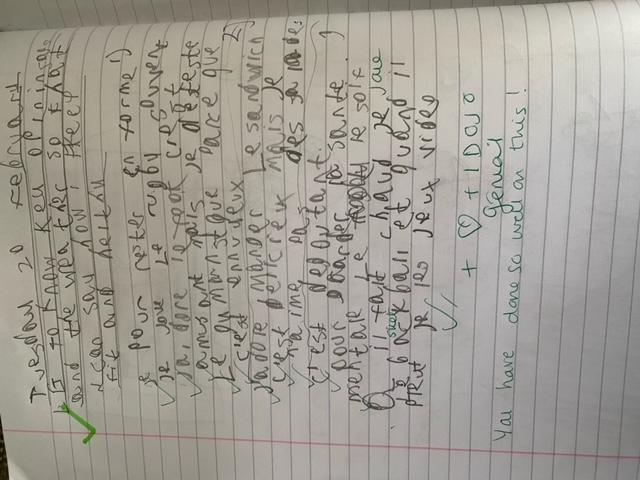 Tuesday 20 February
to know key opinions
and the weather so I
I can say how I keep
fit and healthy
pour rester en forme 1)
je joue le rugby souvent
j'adore le foot c'est
amusant mais je deteste
Le gymnastique parce que
c'est ennuyeux 2)
J'adore manger Le sandwich
c'est delicieux mais je
n'aime pas des salades
C'est degoutant.
pour garder la sante 3)
mentale Le rugby le soir
Q il fait chaud je joue
le basketball et quand il
pleut je jeux video
+ ♡ + 1 DOJO
genial
You have done so well on this!